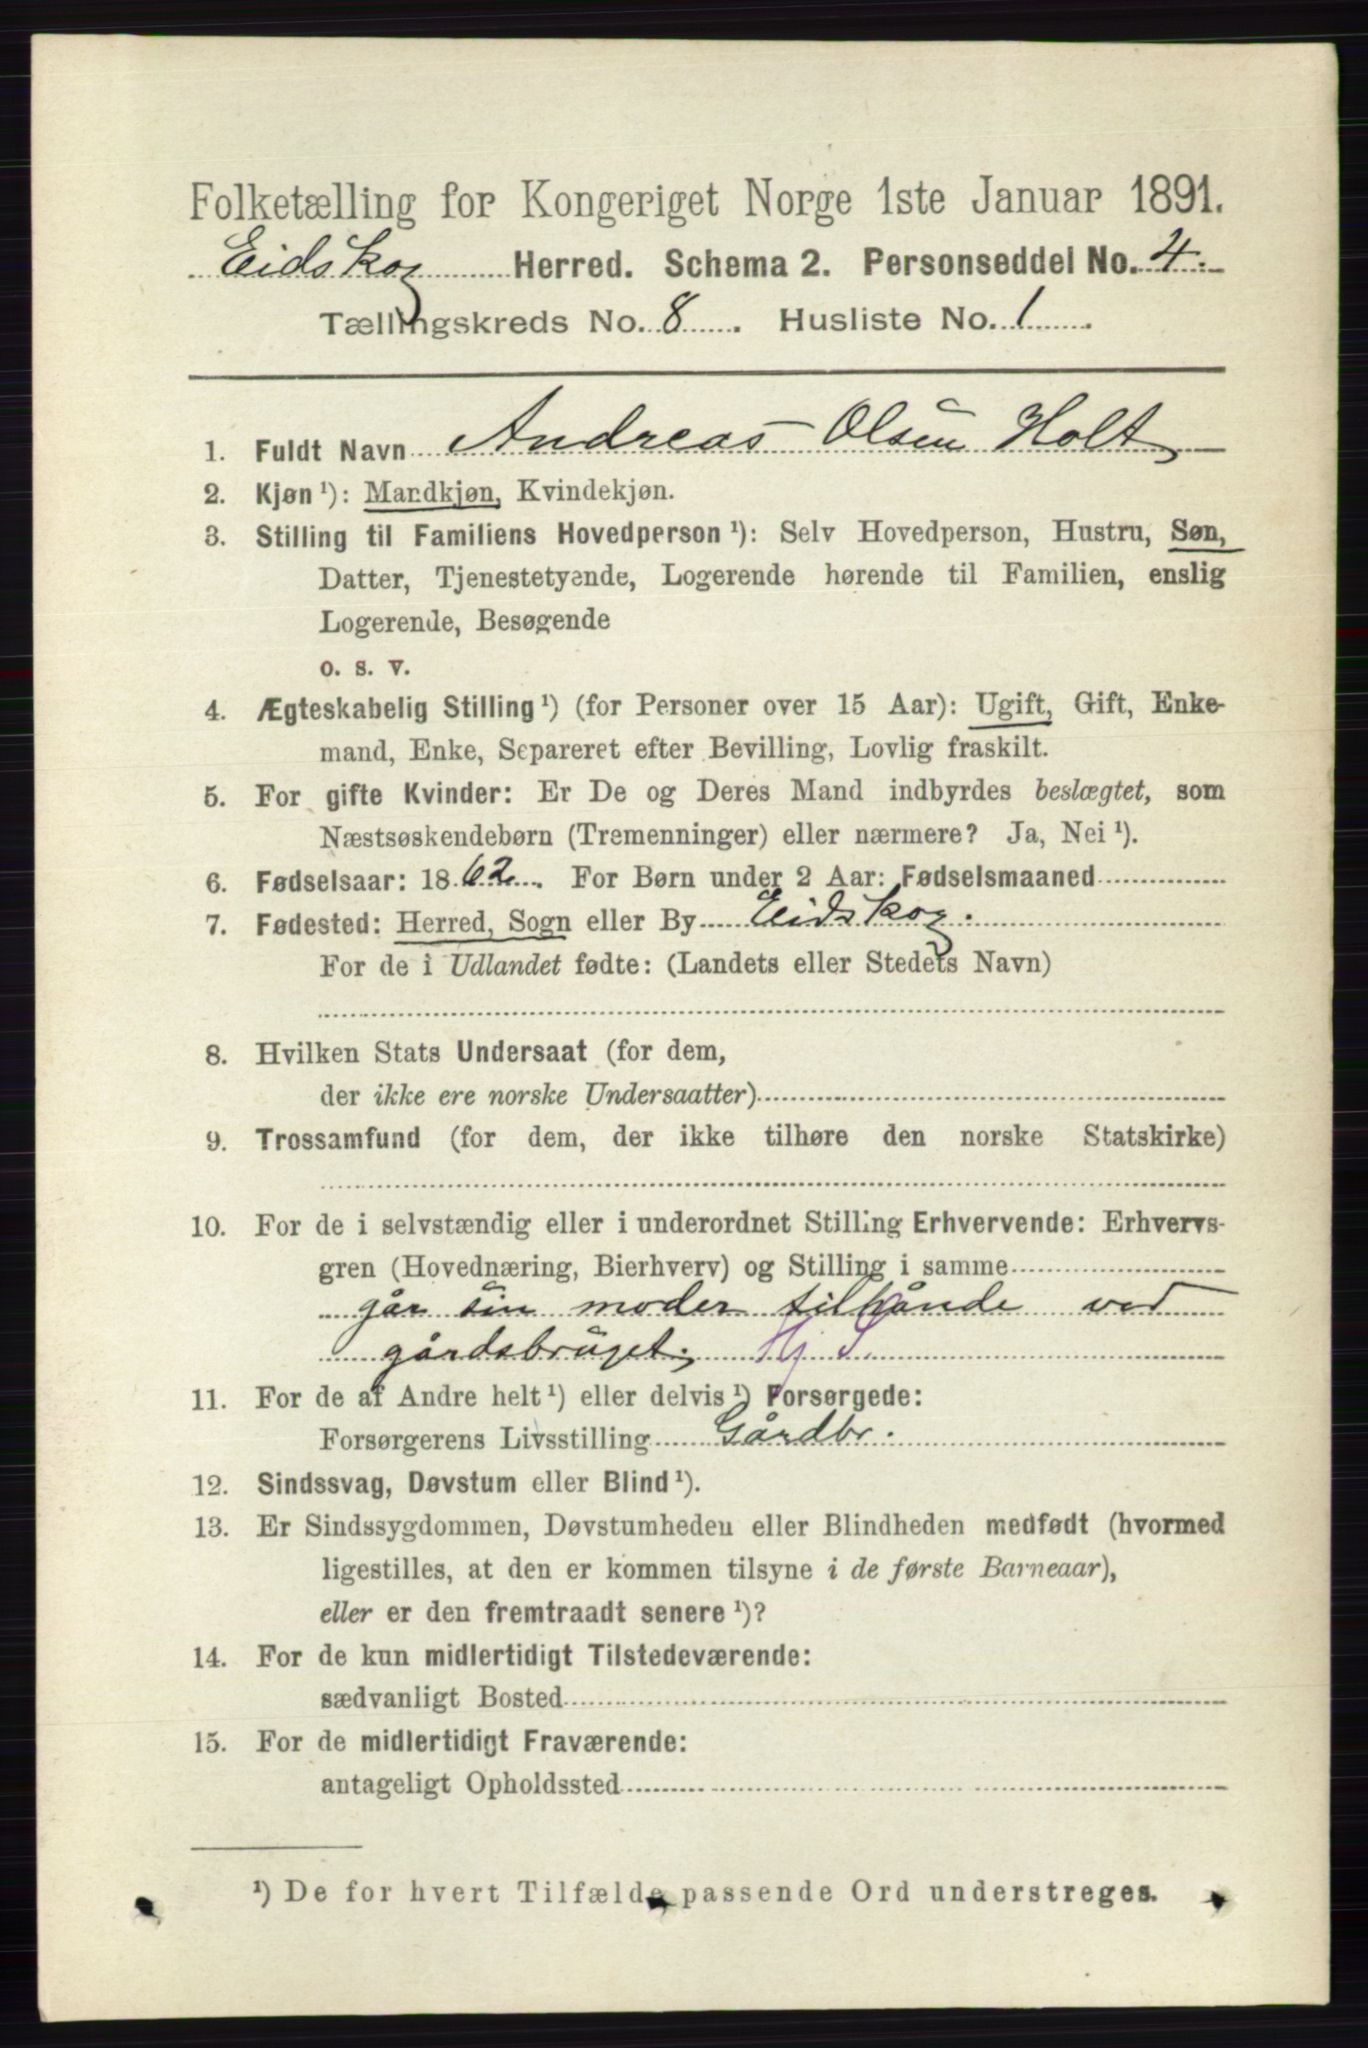 Folketælling for Kongeriget Norge 1ste Januar 1891.
Eidskog Herred. Schema 2. Personseddel No. 4.
Tællingskreds No. 8. Husliste No. 1.
1. Fuldt Navn Andreas Olsen Holt
2. Kjøn ¹): Mandkjøn, Kvindekjøn.
3. Stilling til Familiens Hovedperson ¹): Selv Hovedperson, Hustru, Søn,
Datter, Tjenestetyende, Logerende hørende til Familien, enslig
Logerende, Besøgende
o. s. v.
4. Ægteskabelig Stilling ¹) (for Personer over 15 Aar): Ugift, Gift, Enke-
mand, Enke, Separeret efter Bevilling, Lovlig fraskilt.
5. For gifte Kvinder: Er De og Deres Mand indbyrdes beslægtet, som
Næstsøskendebørn (Tremenninger) eller nærmere? Ja, Nei ¹).
6. Fødselsaar: 1862. For Børn under 2 Aar: Fødselsmaaned
7. Fødested: Herred, Sogn eller By Eidskog.
For de i Udlandet fødte: (Landets eller Stedets Navn)
8. Hvilken Stats Undersaat (for dem,
der ikke ere norske Undersaatter)
9. Trossamfund (for dem, der ikke tilhøre den norske Statskirke)
10. For de i selvstændig eller i underordnet Stilling Erhvervende: Erhvervs-
gren (Hovednæring, Bierhverv) og Stilling i samme
går sin moder tilhånde ved
gårdsbruget. Hj S
11. For de af Andre helt ¹) eller delvis ¹) Forsørgede:
Forsørgerens Livsstilling Gårdbr.
12. Sindssvag, Døvstum eller Blind ¹).
13. Er Sindssygdommen, Døvstumheden eller Blindheden medfødt (hvormed
ligestilles, at den er kommen tilsyne i de første Barneaar),
eller er den fremtraadt senere ¹)?
14. For de kun midlertidigt Tilstedeværende:
sædvanligt Bosted
15. For de midlertidigt Fraværende:
antageligt Opholdssted
¹) De for hvert Tilfælde passende Ord understreges.